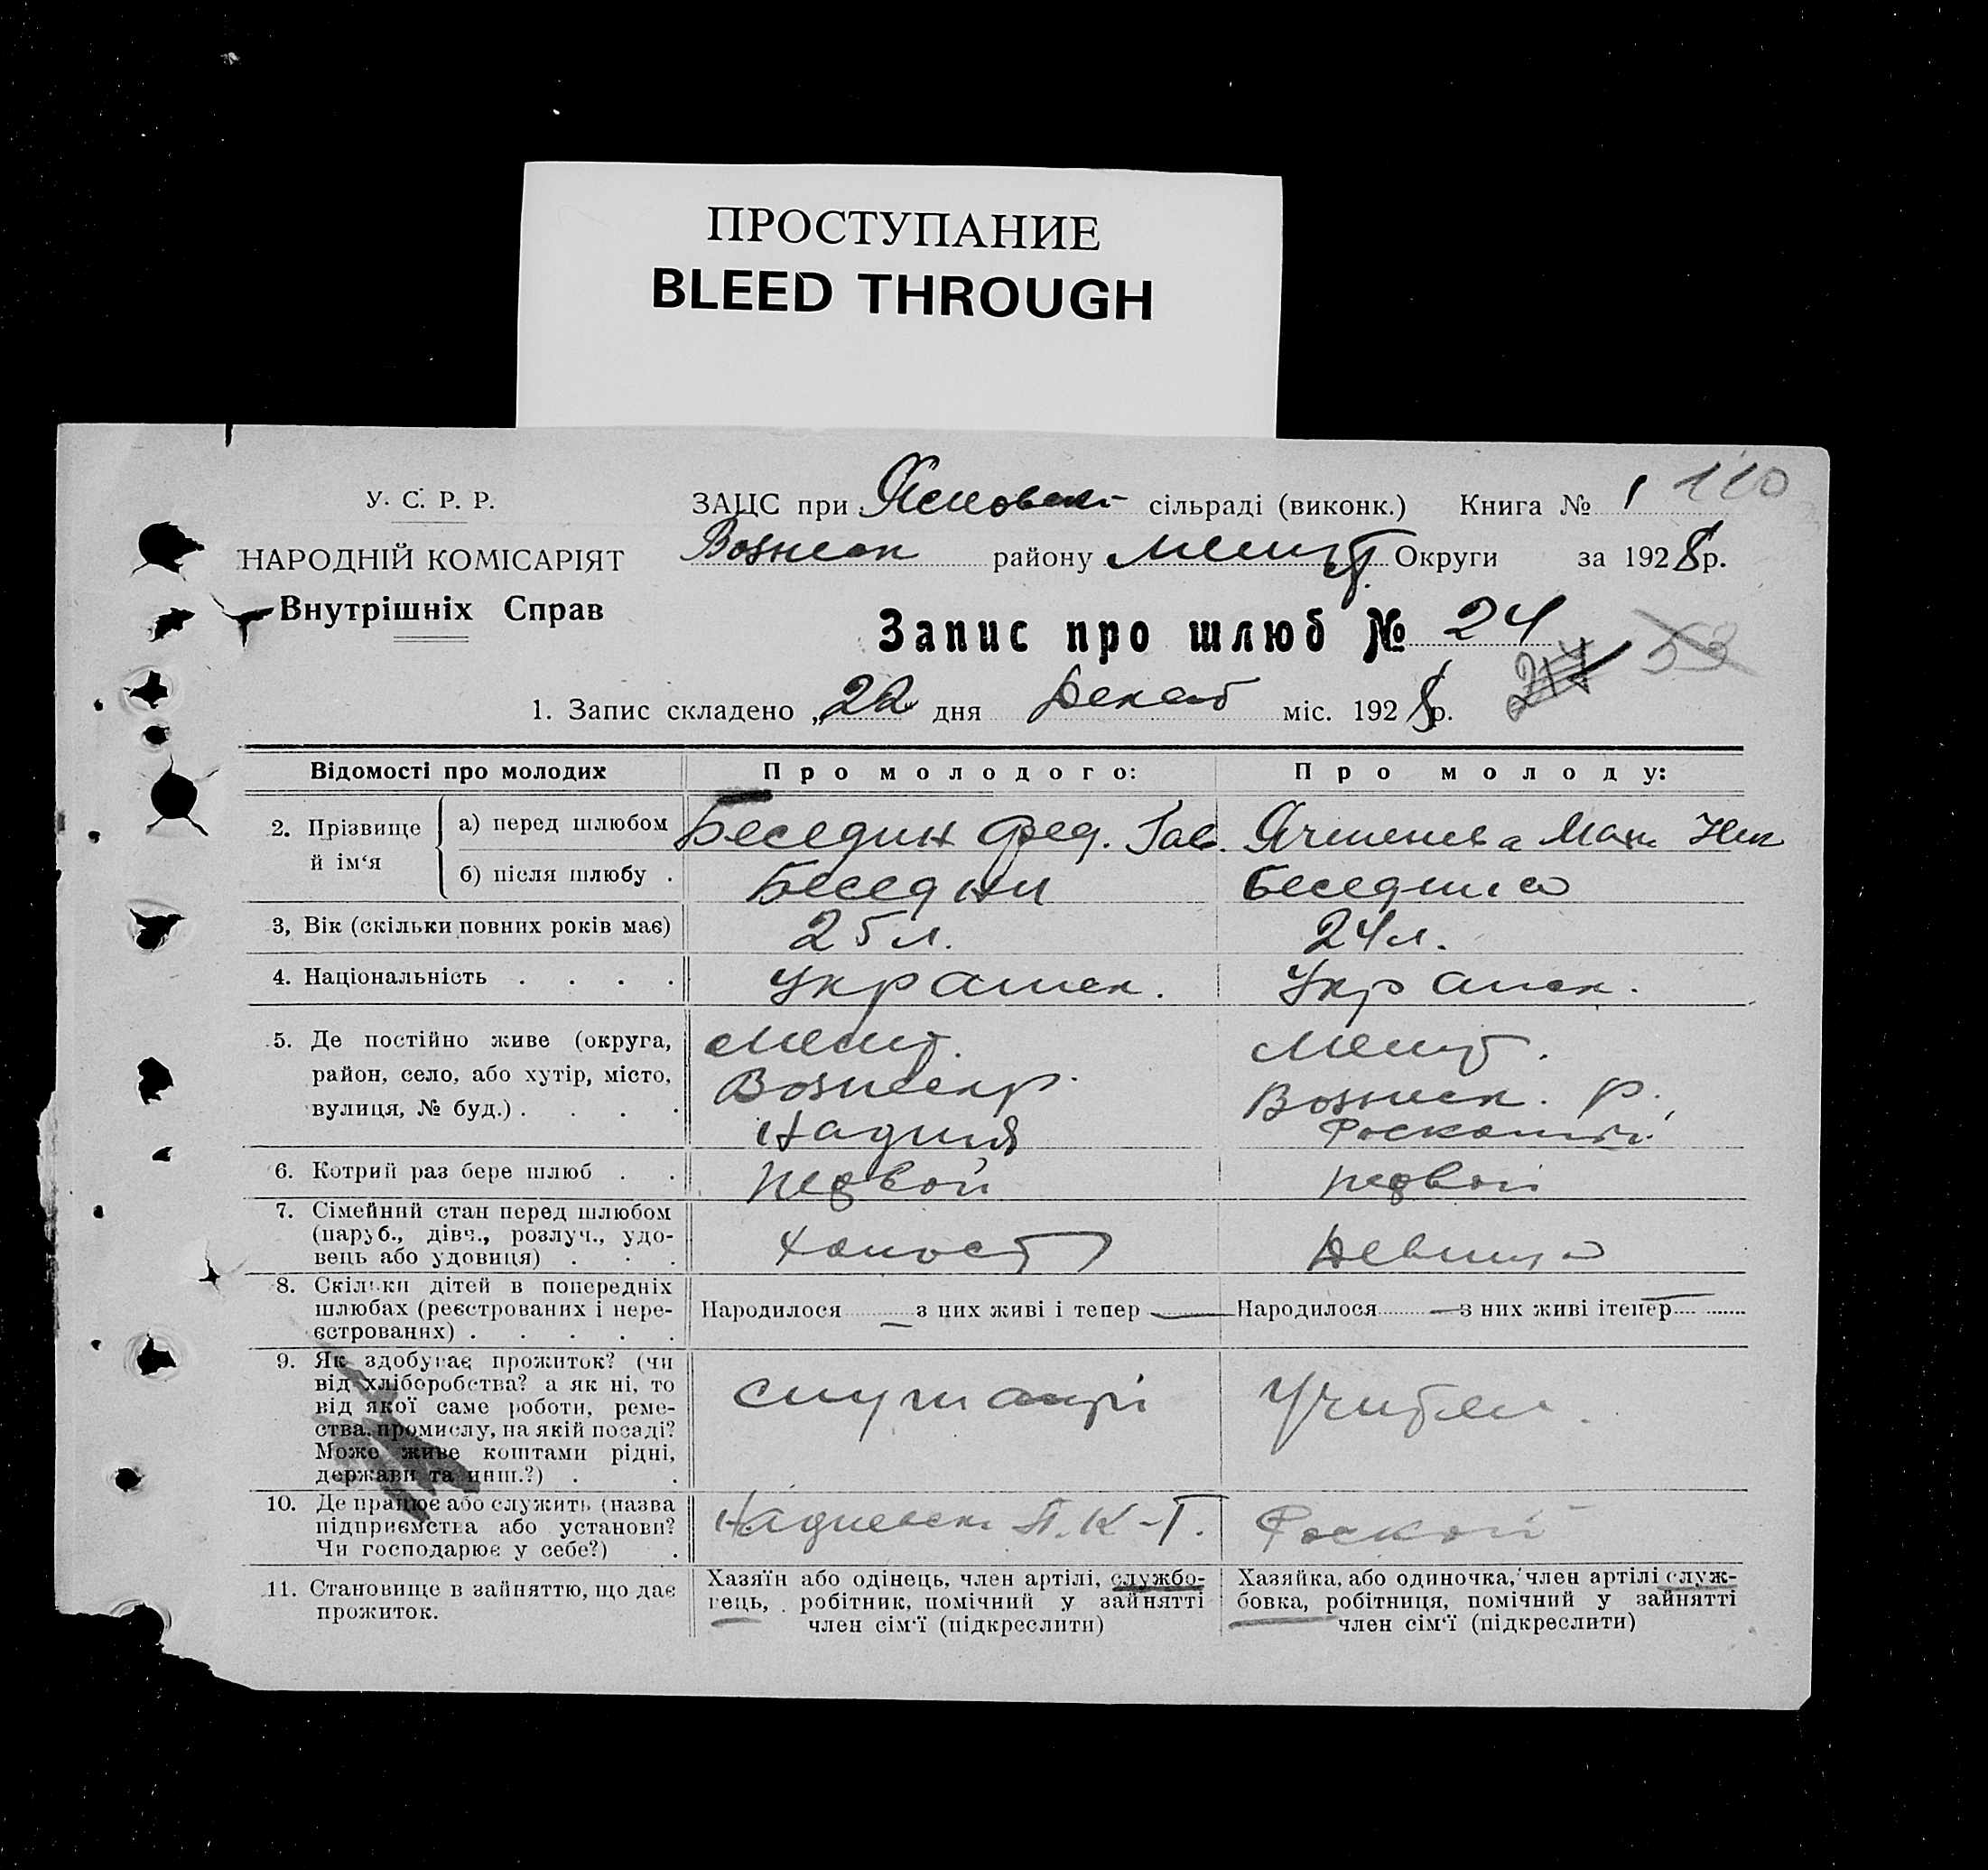 ПРОСТУПАНИЕ
BLEED THROUGH
У. С. Р. Р.
НАРОДНІЙ КОМІСАРІЯТ
Внутрішніх Справ
ЗАЦС при сільраді (виконк.) Книга № 1 110
Вознесен району Округи за 1928 р.
Запис про шлюб № 24
53
1. Запис складено „22 дня Декаб міс. 1928 р.
Відомості про молодих Про молодого: Про молоду:
2. Прізвище й ім‘я
а) перед шлюбом Беседин Фед. Сав.
б) після шлюбу . Беседин Беседина
3, Вік (скільки повних років має) 25 л. 24 л.
4. Національність . . . . Украинск. Украинск.
5. Де постійно живе (округа,
район, село, або хутір, місто,
вулиця, № буд.) . . . .
Вознесен. р.,
6. Котрий раз бере шлюб . . первой первой
7. Сімейний стан перед шлюбом
(паруб., дівч., розлуч., удо-
вець або удовиця) . . . Холост Девица
8. Скільки дітей в попередніх
шлюбах (реєстрованих і нере-
єстрованих) . . . . .
Народилося — з них живі і тепер — Народилося — з них живі ітепер —
9. Як здобуває прожиток? (чи
від хліборобства? а як ні, то
від якої саме роботи, реме-
ства, промислу, на якій посаді?
Може живе коштами рідні,
держави та инш.?) . .
10. Де працює або служить (назва
підприємства або установи?
Чи господарює у себе?) .
11. Становище в зайняттю, що дає
прожиток.
Хазяїн або одінець, член артілі, службо-
вець, . робітник, помічний у зайнятті
член сім‘ї (підкреслити)
Хазяйка, або одиночка, член артілі служ-
бовка, робітниця, помічний у зайнятті
член сім‘ї (підкреслити)